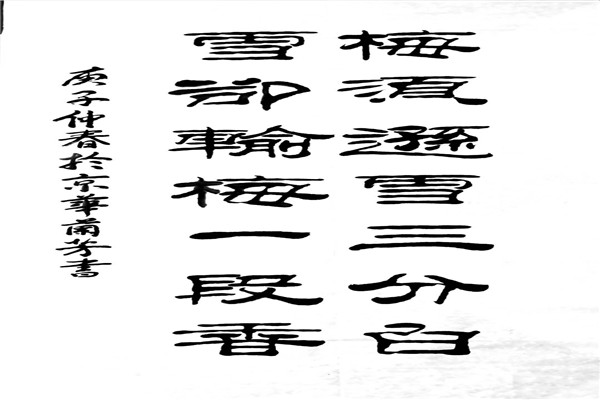 梅須遜雪三分白
雪卻輸梅一段香
庚子仲春於京華蘭芳書